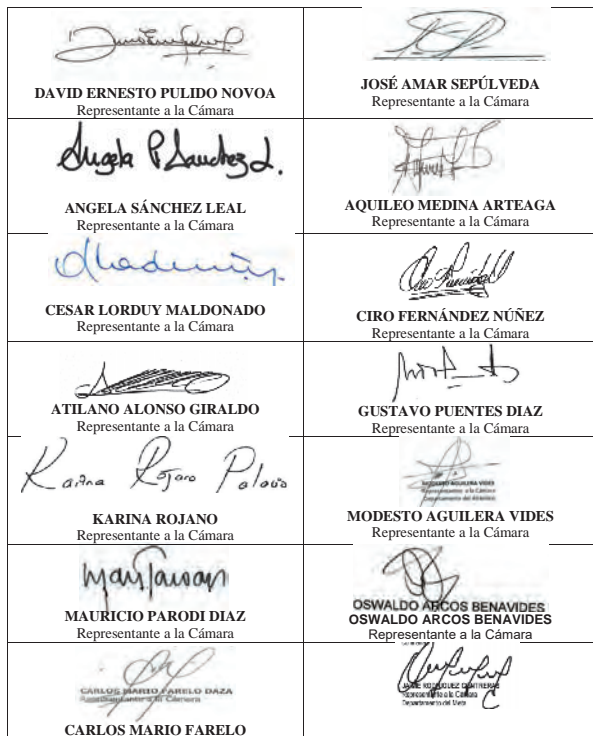 DAVID ERNESTO PULIDO NOVOA
Representante a la Cámara
JOSÉ AMAR SEPÚLVEDA
Representante a la Cámara
Angela P Sanchez L.
ANGELA SÁNCHEZ LEAL
Representante a la Cámara
AQUILEO MEDINA ARTEAGA
Representante a la Cámara
CESAR LORDUY MALDONADO
Representante a la Cámara
CIRO FERNÁNDEZ NÚÑEZ
Representante a la Cámara
ATILANO ALONSO GIRALDO
Representante a la Cámara
GUSTAVO PUENTES DIAZ
Representante a la Cámara
Karina Rojano Palacio
KARINA ROJANO
Representante a la Cámara
MODESTO AGUILERA VIDES
Representante a la Cámara
Departamento del Atlántico
MODESTO AGUILERA VIDES
Representante a la Cámara
MAURICIO PARODI DIAZ
Representante a la Cámara
OSWALDO ARCOS BENAVIDES
OSWALDO ARCOS BENAVIDES
Representante a la Cámara
CARLOS MARIO FARELO DAZA
Representante a la Cámara
CARLOS MARIO FARELO
JAIME RODRIGUEZ CONTRERAS
Representante a la Cámara
Departamento del Meta